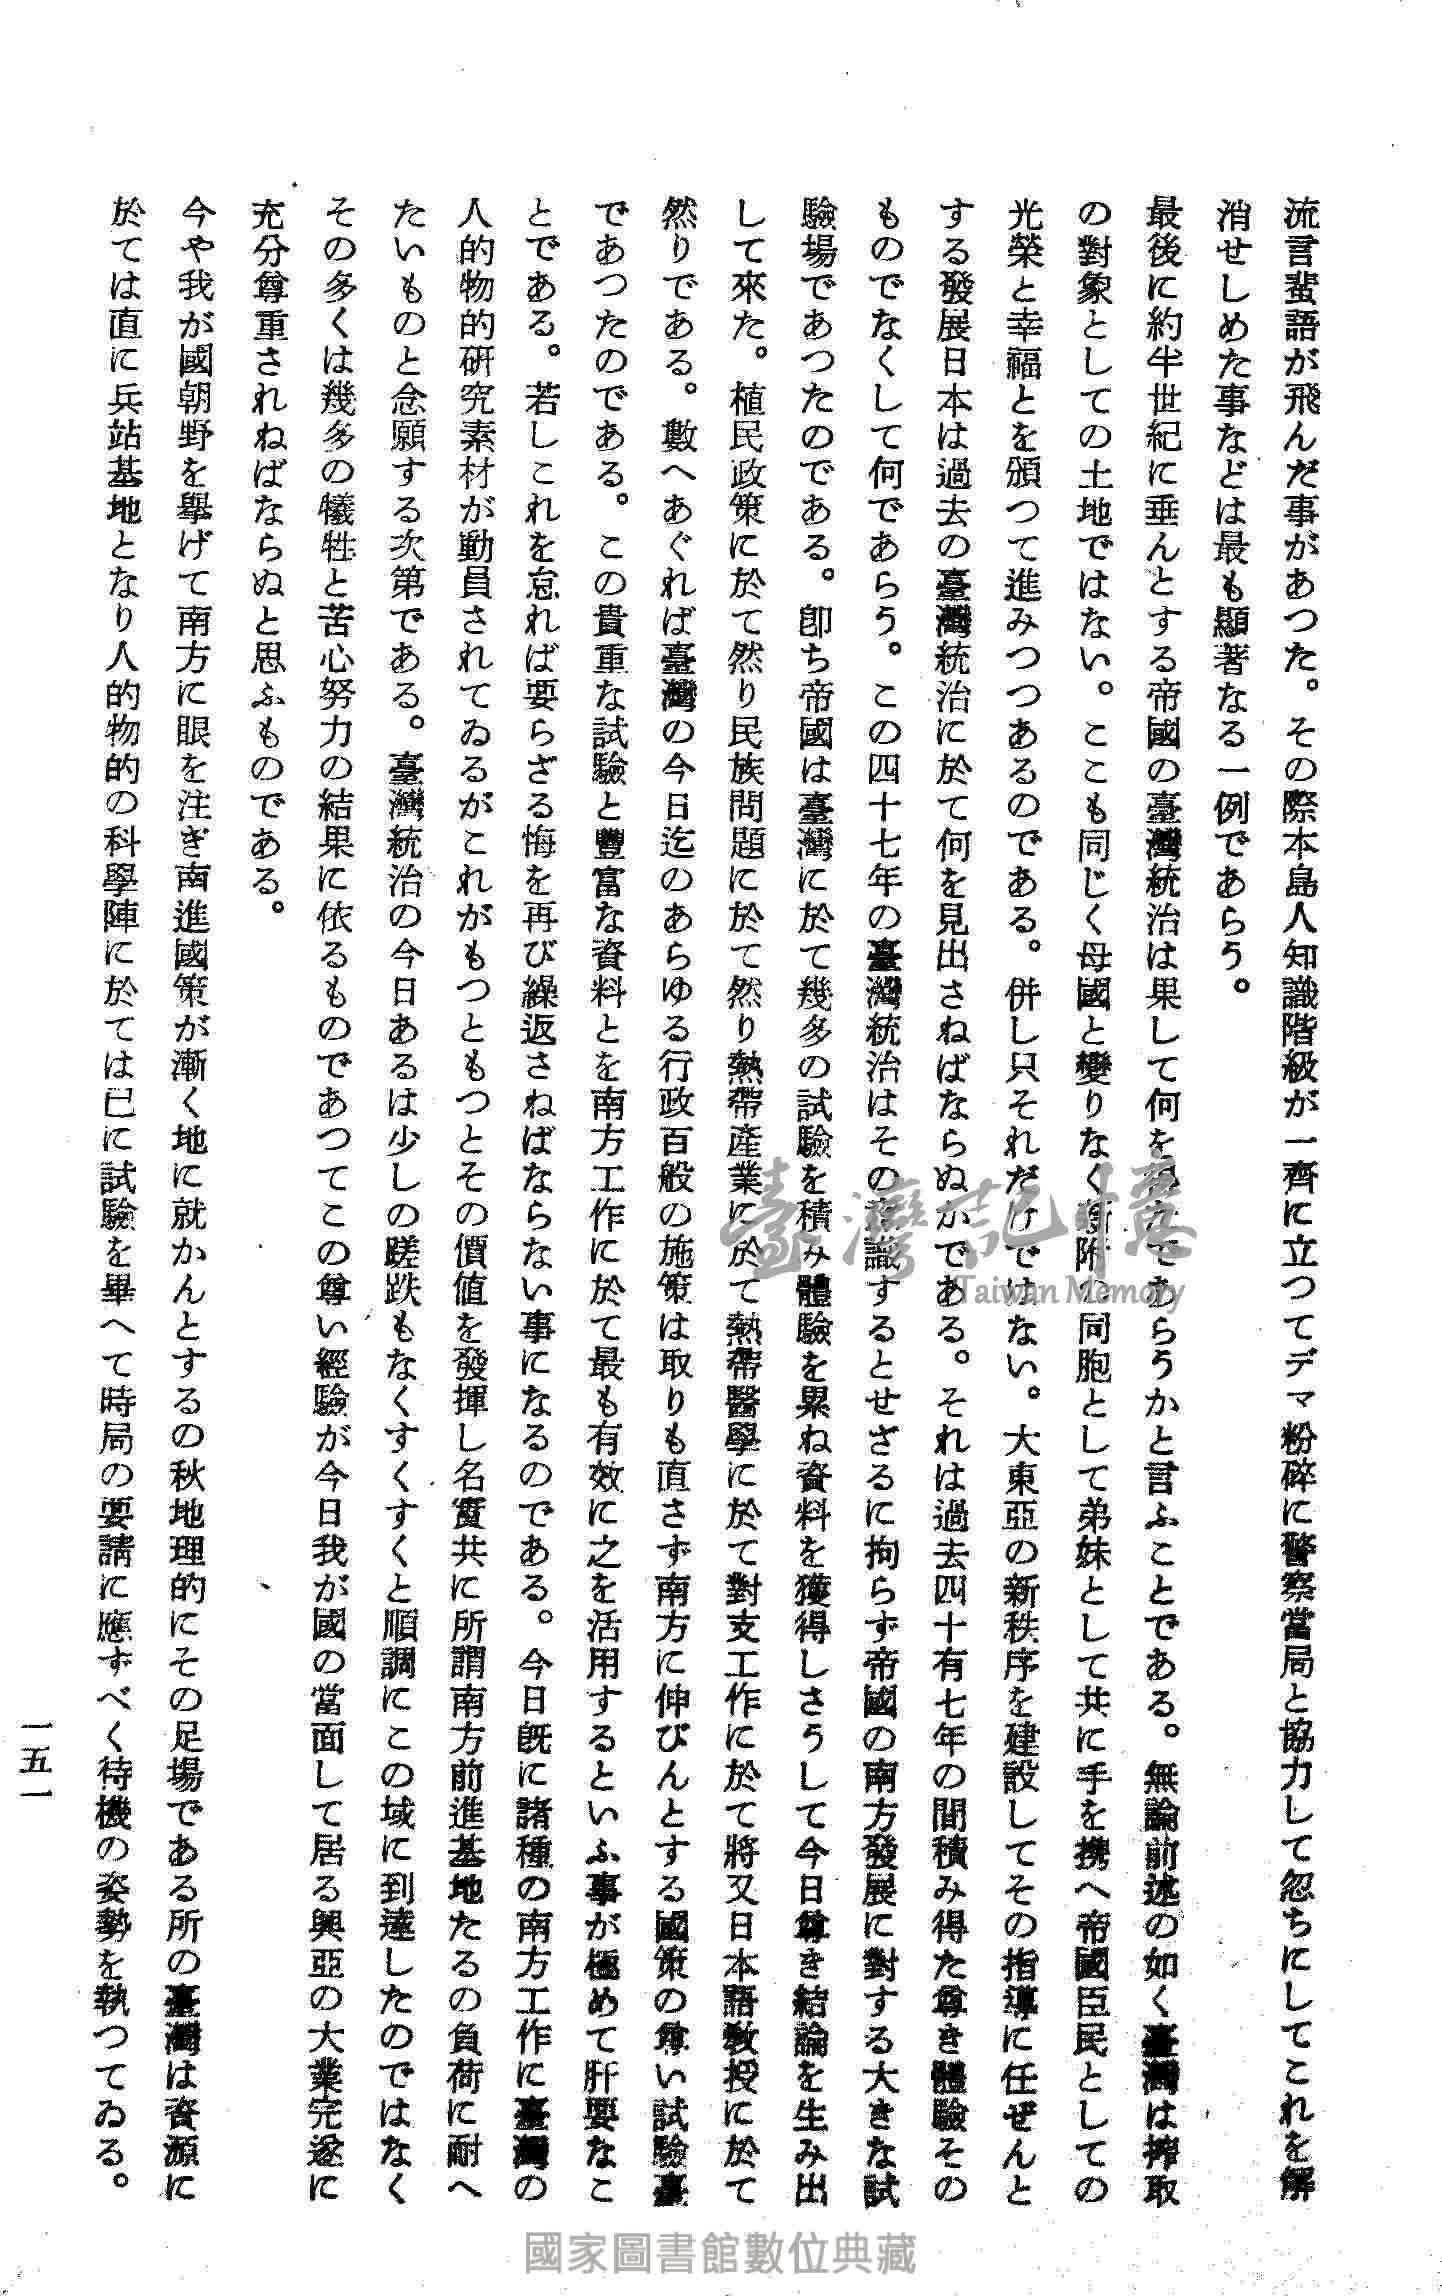 流言蜚語が飛んだ事があつた。その際本島人知識階級が一齊に立つてデマ粉碎に警察當局と協力して忽ちにしてこれを解
消せしめた事などは最も顯著なる一例であらう。
最後に約半世紀に垂んとする帝國の臺灣統治は果して何を であらうかと言ふことである。無論前述の如く臺灣は搾取
の對象としての土地ではない。ここも同じく母國と變りなく新附の同胞として弟妹として共に手を携へ帝國臣民としての
光榮と幸福とを頒つて進みつつあるのである。併し只それだけではない。大東亞の新秩序を建設してその指導に任ぜんと
する發展日本は過去の臺灣統治に於て何を見出さねばならぬかである。それは過去四十有七年の間積み得た尊き體驗その
ものでなくして何であらう。この四十七年の臺灣統治はその意識するとせざるに拘らず帝國の南方發展に對する大きな試
驗場であつたのである。卽ち帝國は臺灣に於て幾多の試驗を積み體驗を累ね資料を獲得しさうして今日尊き結論を生み出
して來た。植民政策に於て然り民族問題に於て然り熱帶產業に於て熱帶醫學に於て對支工作に於て將又日本語敎授に於て
然りである。數へあぐれば臺灣の今日迄のあらゆる行政百般の施策は取りも直さず南方に伸びんとする國策の尊い試驗臺
であつたのである。この貴重な試驗と豐富な資料とを南方工作に於て最も有效に之を活用するといふ事が極めて肝要なこ
とである。若しこれを怠れば要らざる悔を再び繰返さねばならない事になるのである。今日旣に諸種の南方工作に臺灣の
人的物的硏究素材が動員されてゐるがこれがもつともつとその價値を發揮し名實共に所謂南方前進基地たるの負荷に耐へ
たいものと念願する次第である。臺灣統治の今日あるは少しの蹉跌もなくすくすくと順調にこの域に到達したのではなく
その多くは幾多の犧牲と苦心努力の結果に依るものであつてこの尊い經驗が今日我が國の當面して居る興亞の大業完遂に
充分尊重されねばならぬと思ふものである。
今や我が國朝野を擧げて南方に眼を注ぎ南進國策が漸く地に就かんとするの秋地理的にその足場である所の臺灣は資源に
於ては直に兵站基地となり人的物的の科學陣に於ては已に試驗を畢へて時局の要請に應ずべく待機の姿勢を執つてゐる。
一五一
臺灣記憶
Taiwan Memory
國家圖書館數位典藏